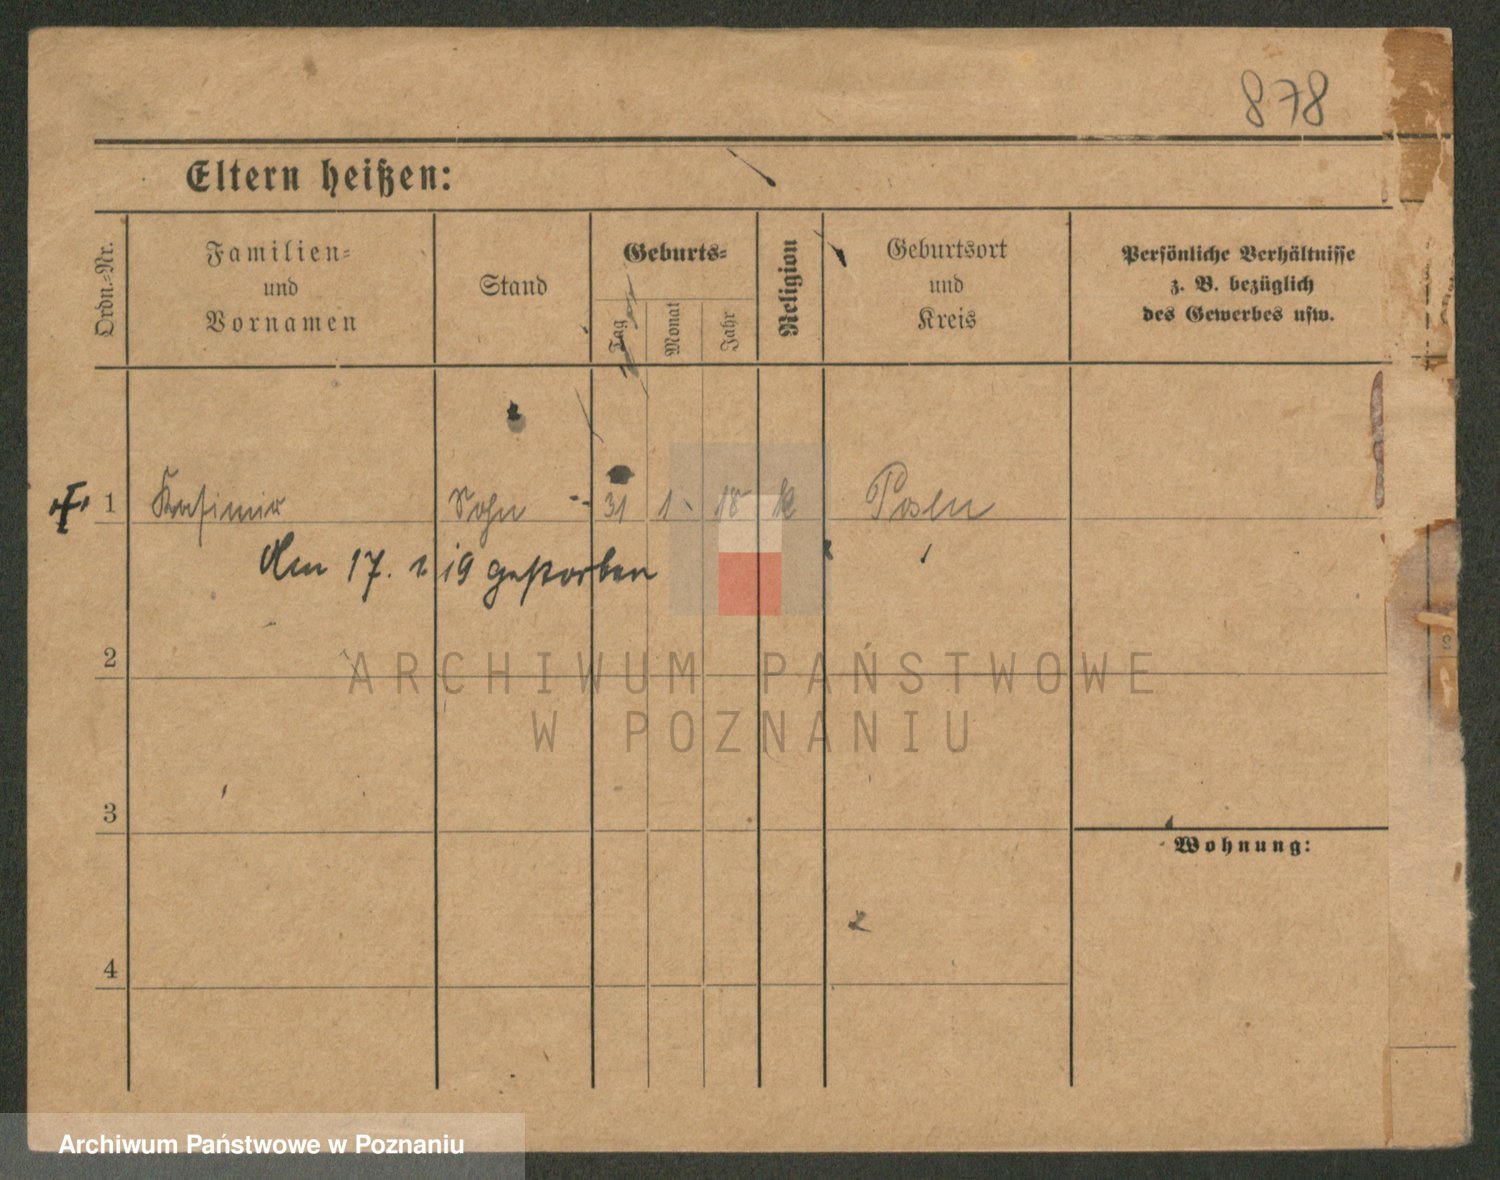 878
Eltern heißen:
Ordn.-Nr.
Familien-
und
Vornamen
Stand
Geburts-
Tag
Monat
Jahr
Religion
Geburtsort
und
Kreis
Persönliche Verhältnisse
z. B. bezüglich
des Gewerbes usw.
1 Kasimir Sohn 31 1. 18 k Posen
Am 17. 1. 19 gestorben
2
ARCHIWUM PAŃSTWOWE
W POZNANIU
3
Wohnung:
4
Archiwum Państwowe w Poznaniu